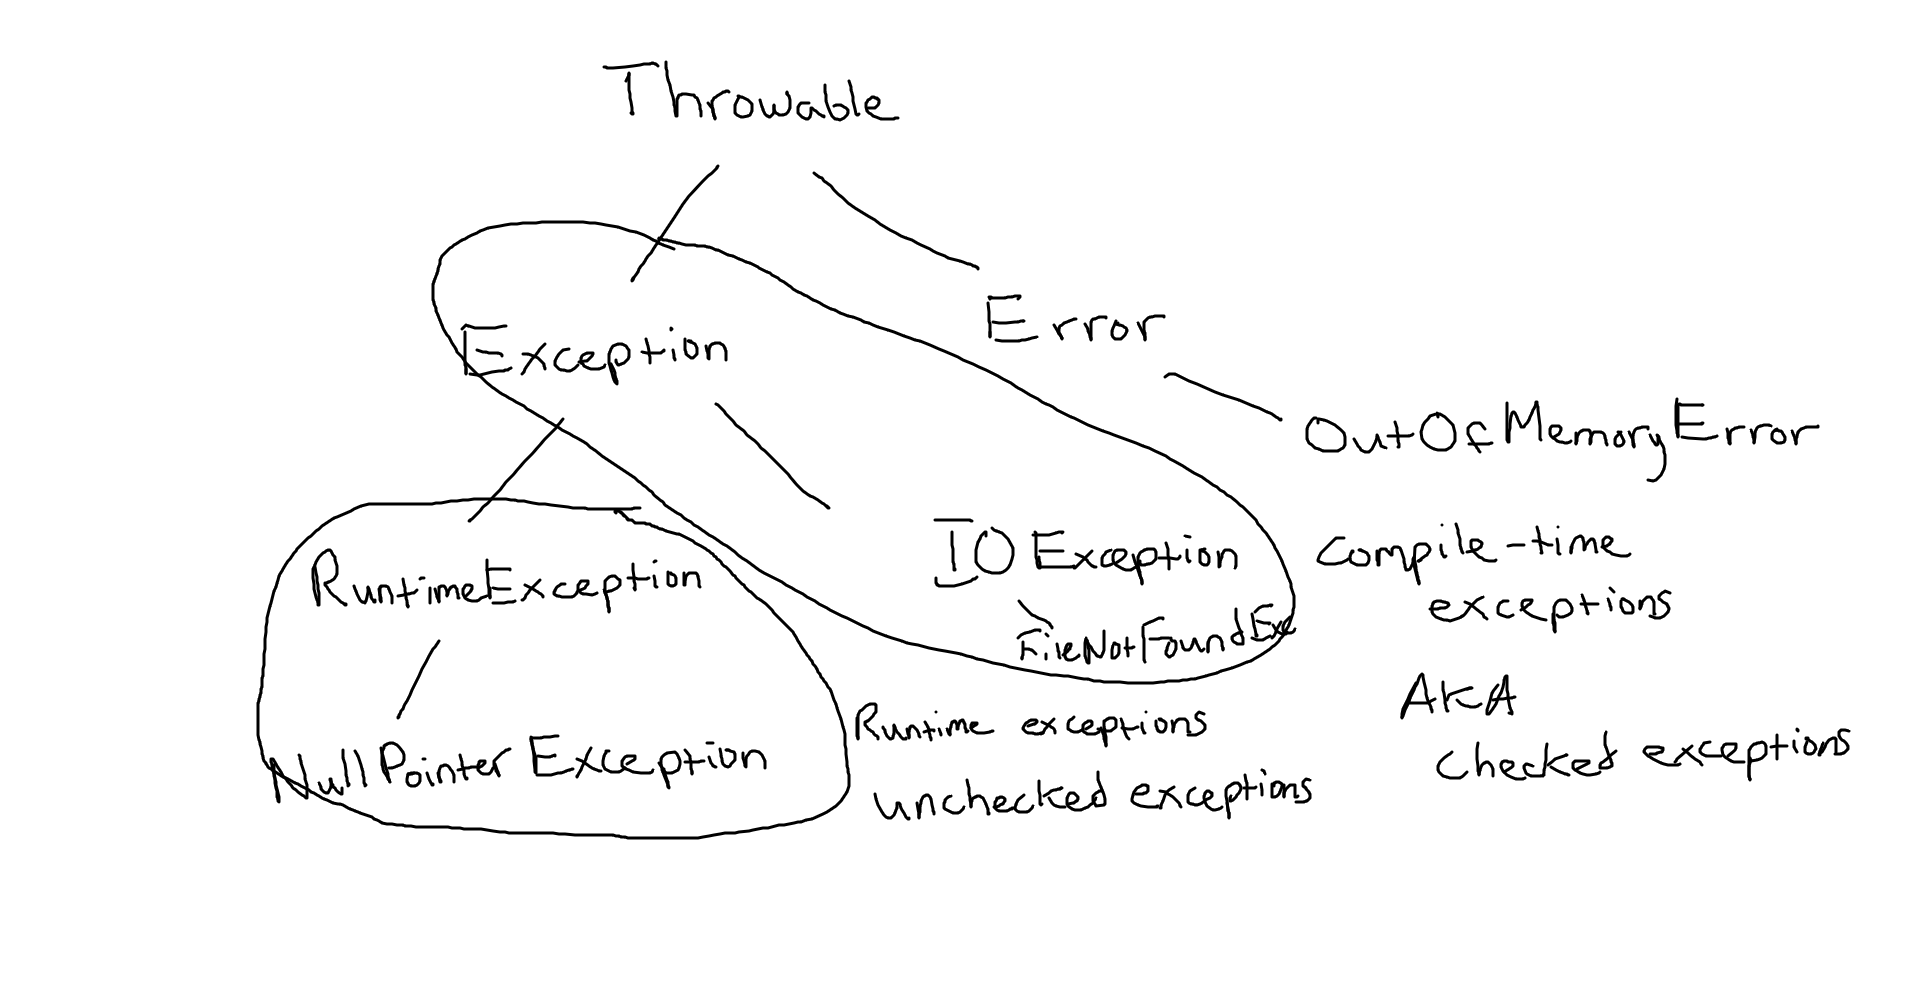 Throwable
Exception
Error
OutOfMemoryError
RuntimeException
IOException
FileNotFoundExe
NullPointerException
Runtime exceptions
unchecked exceptions
Compile-time
exceptions
AKA
checked exceptions